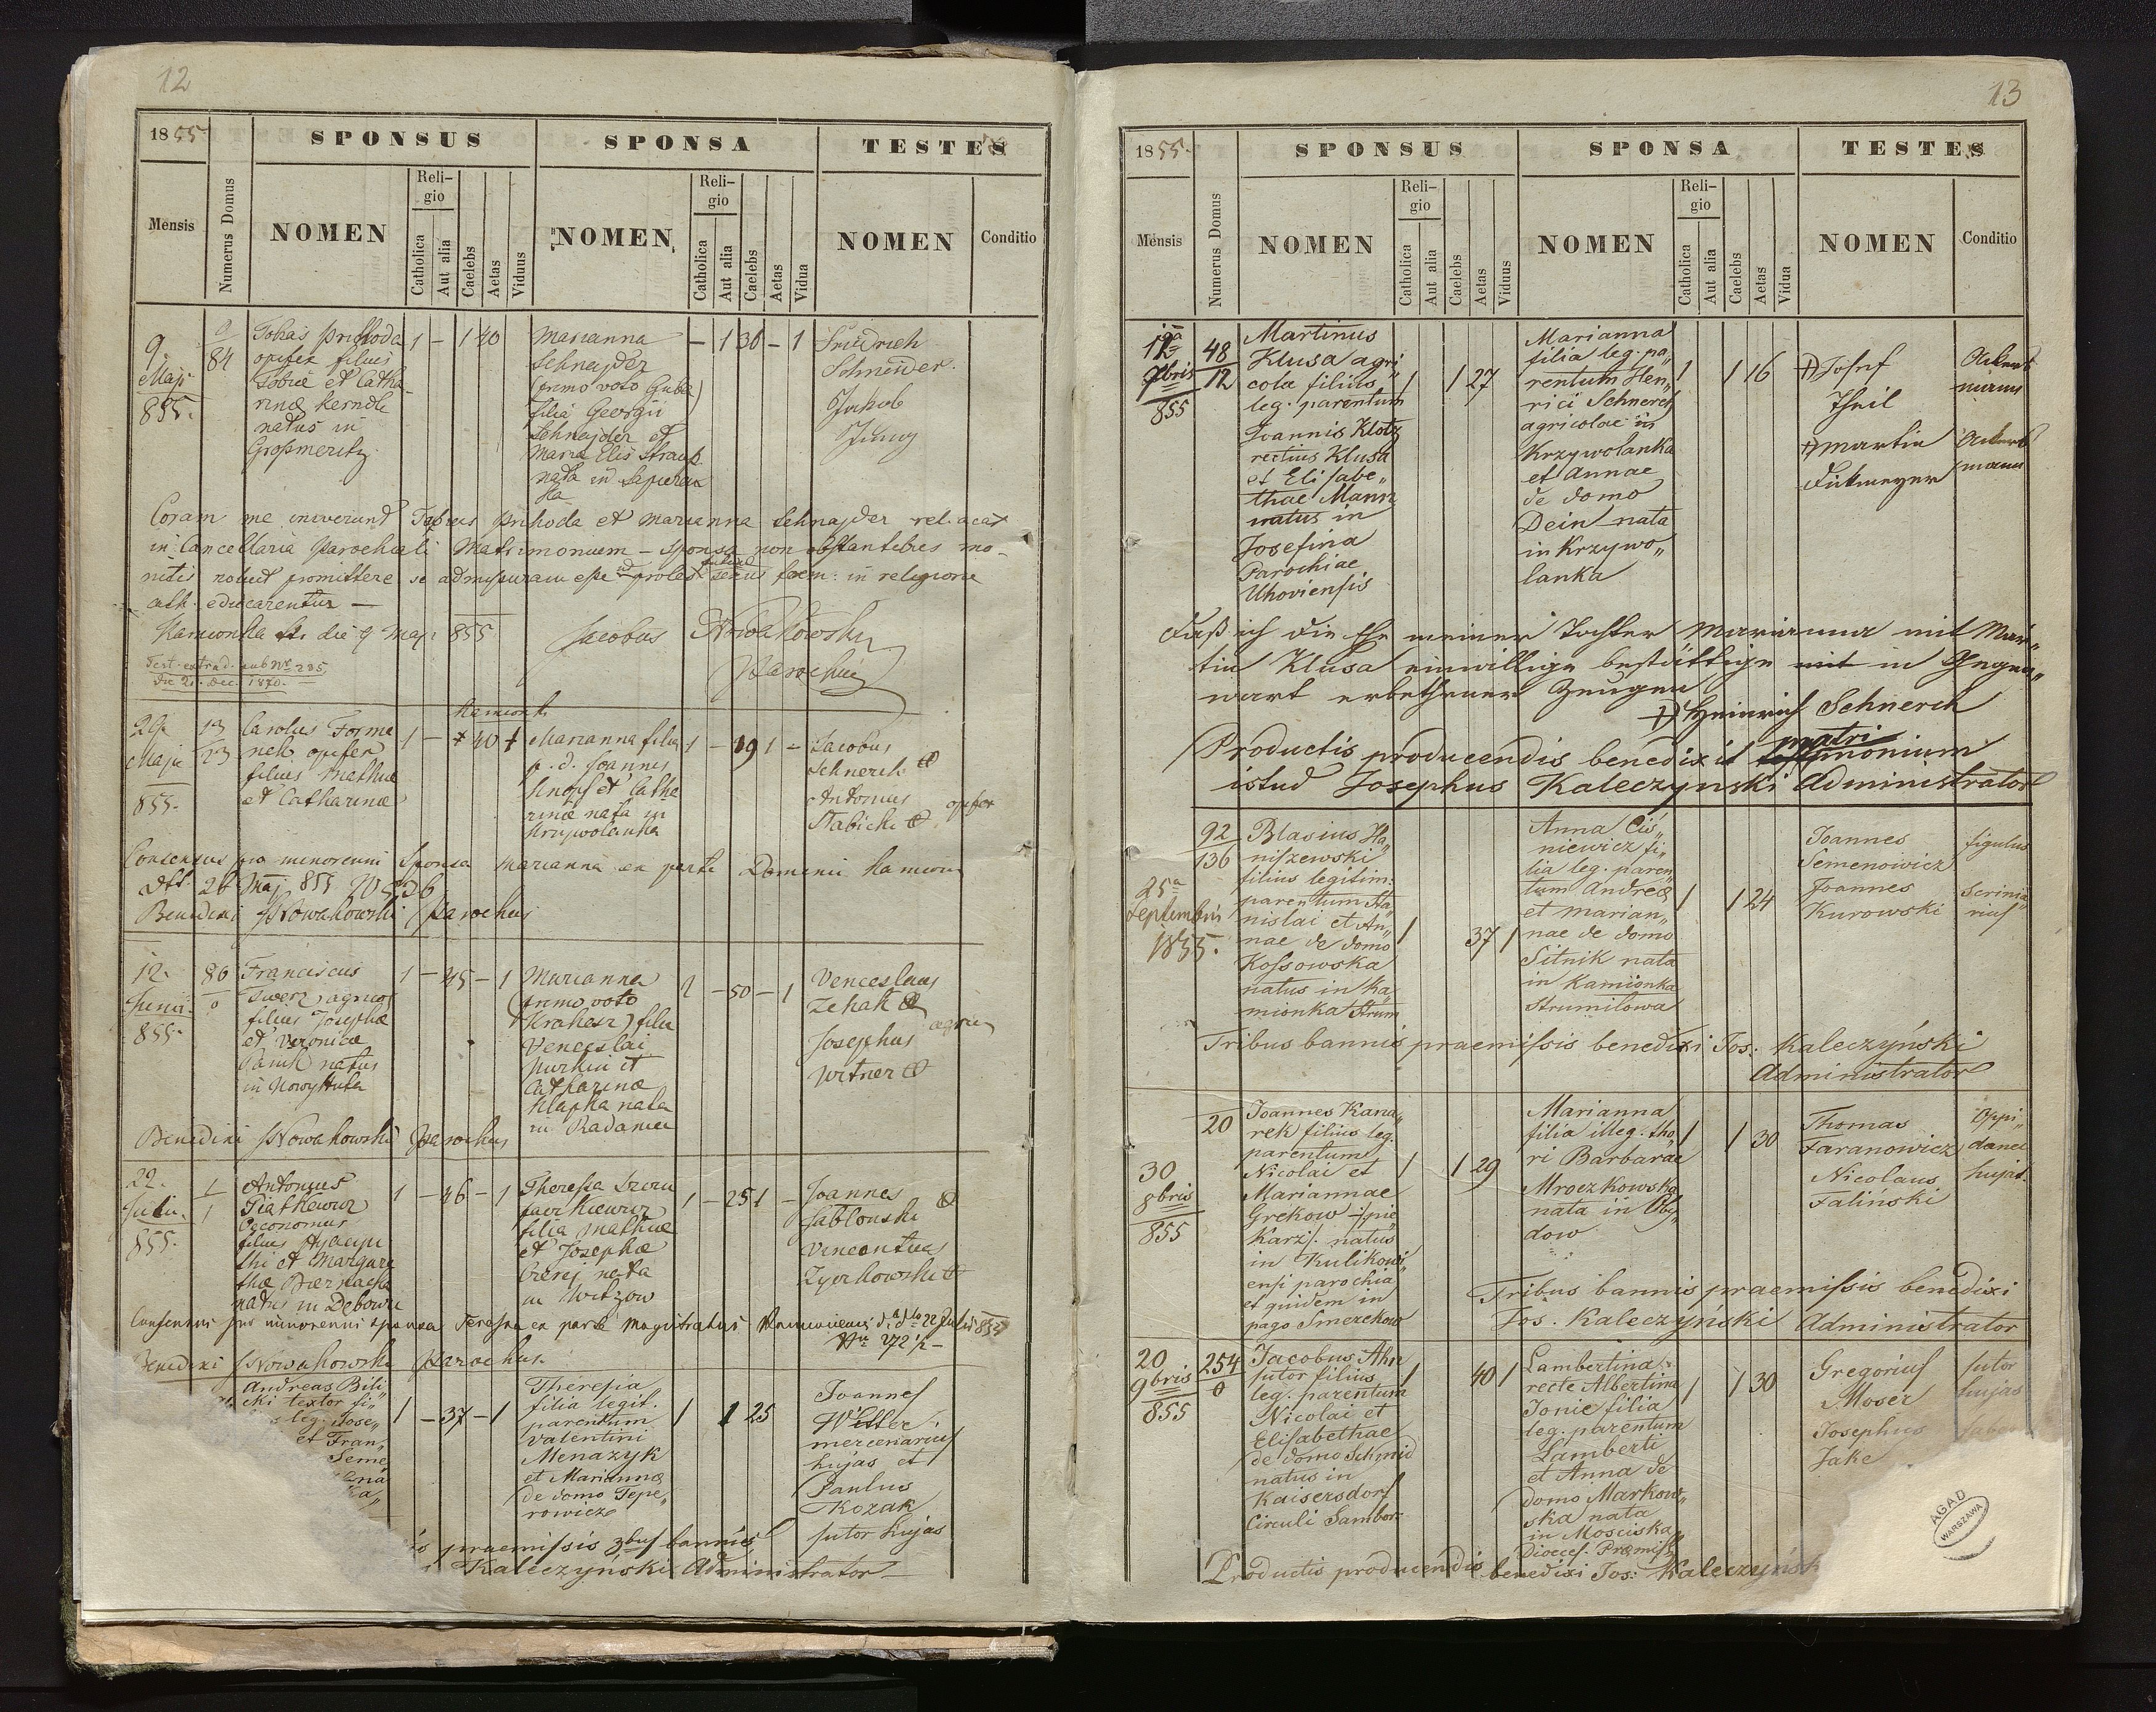 12
1855
SPONSUS
SPONSA
TESTES
Mensis
Numerus Domus
NOMEN
Religio
Catholica
Aut alia
Caelebs
Aetas
Viduus
NOMEN
Religio
Catholica
Aut alia
Caelebs
Aetas
Vidua
NOMEN
Conditio
9
Maji
855.
84
Tobias Prihoda
opifex filius
Tobiae et Catha
rinae
natus in
Großmeritz
1 – 1 40
Marianna
Schnejder
(primo voto Guba)
filia Georgii
Schnejder et
Maria Elis Straup
nata in Sapiezan
ka
– 1 36 – 1
Friedrich
Schneider.
Jakob
Jung
Coram me iniverunt Tobias Prihoda et Marianna Schnajder rel. acat
in Cancellaria Parochiali Matrimonium – sponsa non obstantibus mo-
nitis noluit promittere se
cath. educarentur –
Kamionka str. die 9 Maji 855
Jacobus Nowakowski
Parochus
Test. extrad. sub Nr 285
die 21. Dec. 1870.
29
Maji
855.
13
13
Carolus Forma
nek opifex
filius Mathiae
et Catharinae
1 – 40 1
Kamionk
Marianna filia
p. d. Joannis
Knopf et Catha
rinae nata in
Krzywolanka
1 – 19 1 –
Jacobus
Schnerch
Antonius
Stabicki
opifex
Consensus pro minorenni Sponsa Marianna ex parte Dominii Kamion
dtt. 26 Maj 855
Benedixi JNowakowski Parochus
12.
Junii
855.
86
0
Franciscus
agricol
filius Josephae
et Veronicae
natus
in Nowystula
1 – 45 – 1
Marianna
(primo voto
filia
Venceslai
et
Catharinae
Klapka nata
in Radanea
1 – 50 – 1
Venceslaus
Zehak
Josephus
Witner
agric
Benedixi JNowakowski Parochus
22.
Julii.
855.
1
1
Antonius
Piatkewicz
Oeconomus
filius Hyacyn
thi et Margare
thae Biernacka
natus in Debowa
1 – 46 – 1
Theressa
filia Mathiae
et Josephae
nata
in Witzow
1 – 25 1 –
Joannes
Jablonski
Vincentius
Zyerkowski
Consensus pro minorenni sponsa Teressa ex parte Magistratus
22 Julii 855
Nro 272/2 –
Benedixi JNowakowski Parochus.
Andreas Bili„
cki textor fi„
s leg. Jose„
et Fran„
Seme
1 – 37 – 1
Theresia
filia legit.
parentum
Valentini
Menazyk
et Mariannae
de domo Tepe„
rowicz
1 1 25
Joannes
Witter
mercenarius
hujas et
Paulus
Kozak
sutor hujas
praemissis 3bus bannis
Kaleczyński Administrator
13
1855.
SPONSUS
SPONSA
TESTES
Mensis
Numerus Domus
NOMEN
Religio
Catholica
Aut alia
Caelebs
Aetas
Viduus
NOMEN
Religio
Catholica
Aut alia
Caelebs
Aetas
Vidua
NOMEN
Conditio
12a
7bris
855
48
12
Martinus
Klusa agri„
cola filius
leg. parentum
Joannis Klotz
rectius Klusa
et Elisabe„
thae Mann
natus in
Josefina
Parochiae
Uhoviensis
1 1 27
Marianna
filia leg. pa„
rentum Hen„
rici Schnerch
agricolae in
Krzywolanka
et Annae
de domo
Dein nata
in Krzywo„
lanka
1 1 16
Josef
Theil
Martin
Fükmeyer
Ackers
mann
Ackers
mann
Daß ich die Ehe meiner Tochter Marianna mit Mar„
tin Klusa einwillige bestättige mit in Gegen„
wart erbethener Zeugen
Heinrich Schnerch
Productis producendis benedixit matrimonium
istud Josephus Kaleczynski Administrator
25a
Septembris
1855.
92
136
Blasius Ha„
niszewski
filius legitim.
parentum Sta„
nislai et An„
nae de domo
Kossowska
natus in Ka„
mionka Strum
1 37 1
Anna Ciś„
niewicz fi„
lia leg. paren
tum Andreae
et Marian„
nae de domo
Sitnik nata
in Kamionka
Strumilowa
1 1 24
Joannes
Semenowicz
Joannes
Kurowski
figulus
Scrinia„
rius
Tribus bannis praemissis benedixi Jos: Kaleczyński
Administrator
30
8bris
855
20
Joannes Kana„
rek filius leg.
parentum
Nicolai et
Mariannae
Grekow /:pie„
Karz:/ natus
in Kulikowi„
ensi parochia
et quidem in
pago Smerekow
1 1 29
Marianna
filia illeg. tho„
ri Barbarae
Mroczkowska
nata in Oby„
dow
1 1 30
Thomas
Faranowicz
Nicolaus
Faliński
Oppi„
danei
hujat.
Tribus bannis praemissis benedixi
Jos. Kaleczyński Administrator
20
9bris
855
254
0
Jacobus Ahn
sutor filius
leg. parentum
Nicolai et
Elisabethae
de domo Schmid
natus in
Kaisersdorf
Circuli Sambor:
1 40 1
Lambertina
recte Albertina
Jonie filia
leg. parentum
Lamberti
et Anna de
domo Markow„
ska nata
in Mosciska
Dioeces. Praemisl
1 1 30
Gregorius
Moser
Josephus
Jake
sutor
hujas
faber
Productis producendis benedixi Jos: Kaleczyńsk
AGAD
WARSZAWA